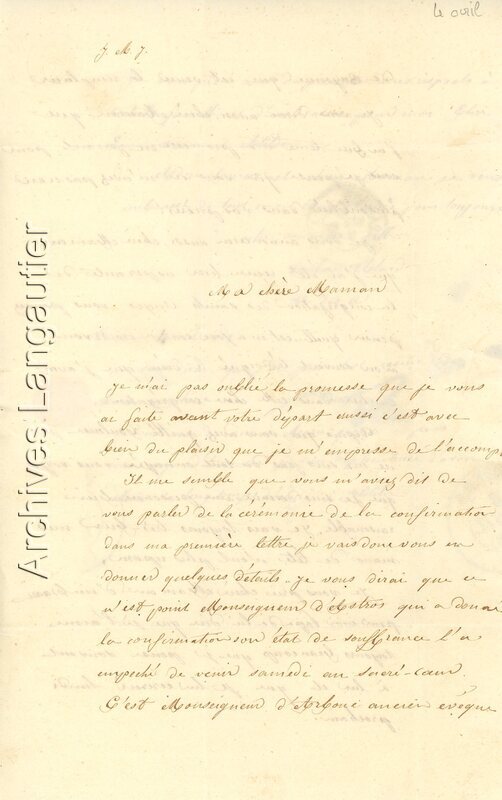 4 avril
J. M. J.
Ma chère Maman
Je n'ai pas oublié la promesse que je vous
ai faite avant votre départ aussi c'est avec
bien du plaisir que je m'empresse de l'accomp
Il me semble que vous m'aviez dit de
vous parler de la cérémonie de la confirmation
dans ma première lettre je vais donc vous en
donner quelques détails. Je vous dirai que ce
n'est point Monseigneur d'Astros qui a donné
la confirmation son état de souffrance l'a
empeché de venir samedi au sacré-cœur.
C'est Monseigneur d'Arbou ancien évêque
Archives Langautier